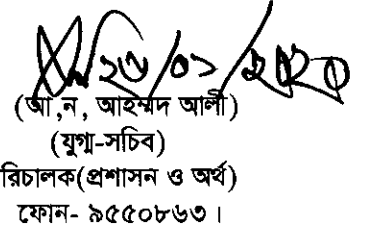 ২৩/০১/২০২০
(আ,ন, আহম্মদ আলী)
(যুগ্ম-সচিব)
রিচালক(প্রশাসন ও অর্থ)
ফোন- ৯৫৫০৮৬৩।